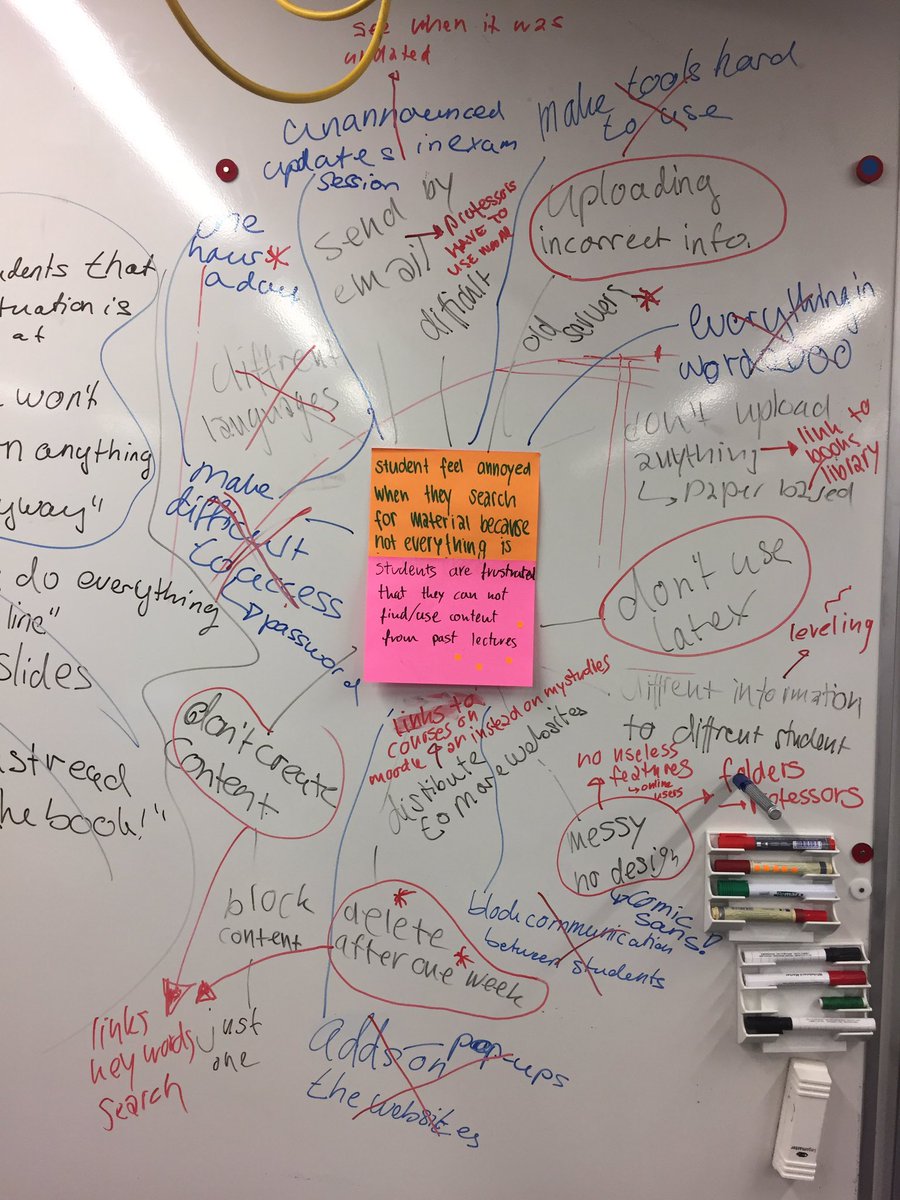 see when it was
updated
unannounced
updates in exam
session
make tools hard
to use
uploading
incorrect info.
send by
email
professors
HAVE TO
USE
difficult
old servers
one
hour
a day
diffrent
languages
everything in
word 2000
don't upload
anything
paper based
link to
books
library
udents that
tuation is
at
won't
n anything
yway"
do everything
line"
slides
st read
he book!"
make
difficult
to access
password
student feel annoyed
when they search
for material because
not everything is
students are frustrated
that they can not
find/use content
from past lectures
don't use
latex
leveling
diffrent information
to diffrent student
links to
courses on
moodle
an instead on my studies
distribute
to more websites
no useless
features
online
users
folders
professors
messy
no design
comic
sans!
don't create
content
block
content
just
one
delete
after one week
block communication
between students
links
key words
search
adds on pop-ups
the websites